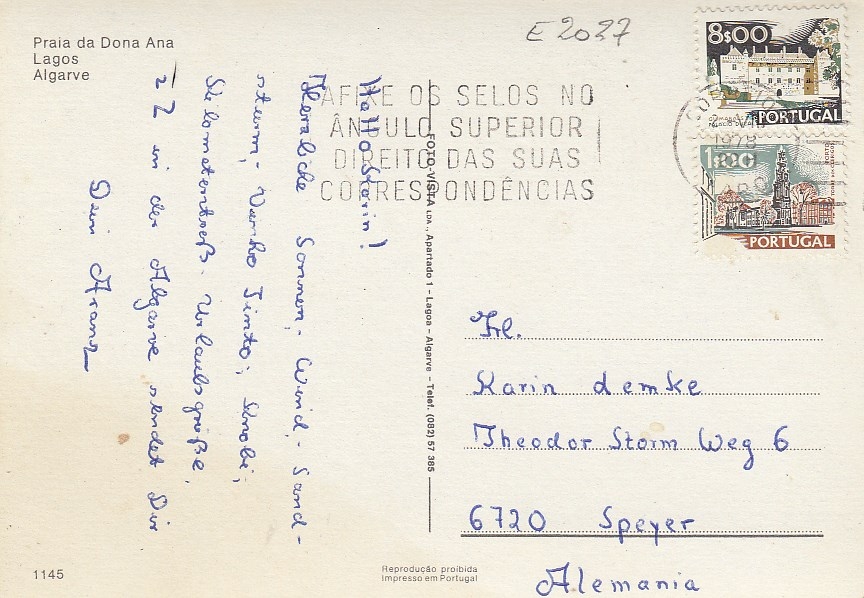 Praia da Dona Ana
Lagos
Algarve
E 2027
8$00
PORTUGAL
1$00
PORTUGAL
1978
AFIXE OS SELOS NO
ÂNGULO SUPERIOR
DIREITO DAS SUAS
CORRESPONDÊNCIAS
Hallo Karin!
Herzliche Sonnen,- Wind,- Sand-
sturm,- Venho Tinto,- Knobi,-
Kilometerfreß- Urlaubsgrüße,
z Z in der Algarve sendet Dir
Dein Franz
FOTO-VISTA LDA., Apartado 1 - Lagoa - Algarve - Telef. (082) 57 385
Frl.
Karin Lemke
Theodor Storm Weg 6
6720 Speyer
Alemania
1145
Reprodução proibida
Impresso em Portugal